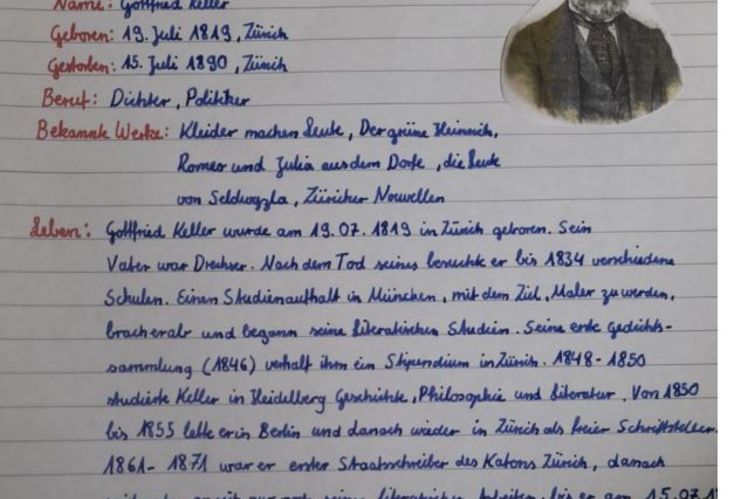 Name: Gottfried Keller
Geboren: 19. Juli 1819, Zürich
Gestorben: 15. Juli 1890, Zürich
Beruf: Dichter, Politiker
Bekannte Werke: Kleider machen Leute, Der grüne Heinrich,
Romeo und Julia aus dem Dorfe, die Leute
von Seldwyla, Züricher Nouvellen
Leben: Gottfried Keller wurde am 19.07.1819 in Zürich geboren. Sein
Vater war Drechser. Nach dem Tod seines besuchte er bis 1834 verschiedene
Schulen. Einen Studienaufhalt in München, mit dem Ziel, Maler zu werden,
brach er ab und begann seine literatischen Studien. Seine erste Gedichts-
sammlung (1846) verhalf ihm ein Stipendium in Zürich. 1848-1850
studierte Keller in Heidelberg Geschichte, Philosophie und Literatur. Von 1850
bis 1855 lebte er in Berlin und danach wieder in Zürich als freier Schriftsteller.
1861-1871 war er erster Staatsschreiber des Katons Zürich, danach
seine literarischen Arbeiten bis er am 15.07.1